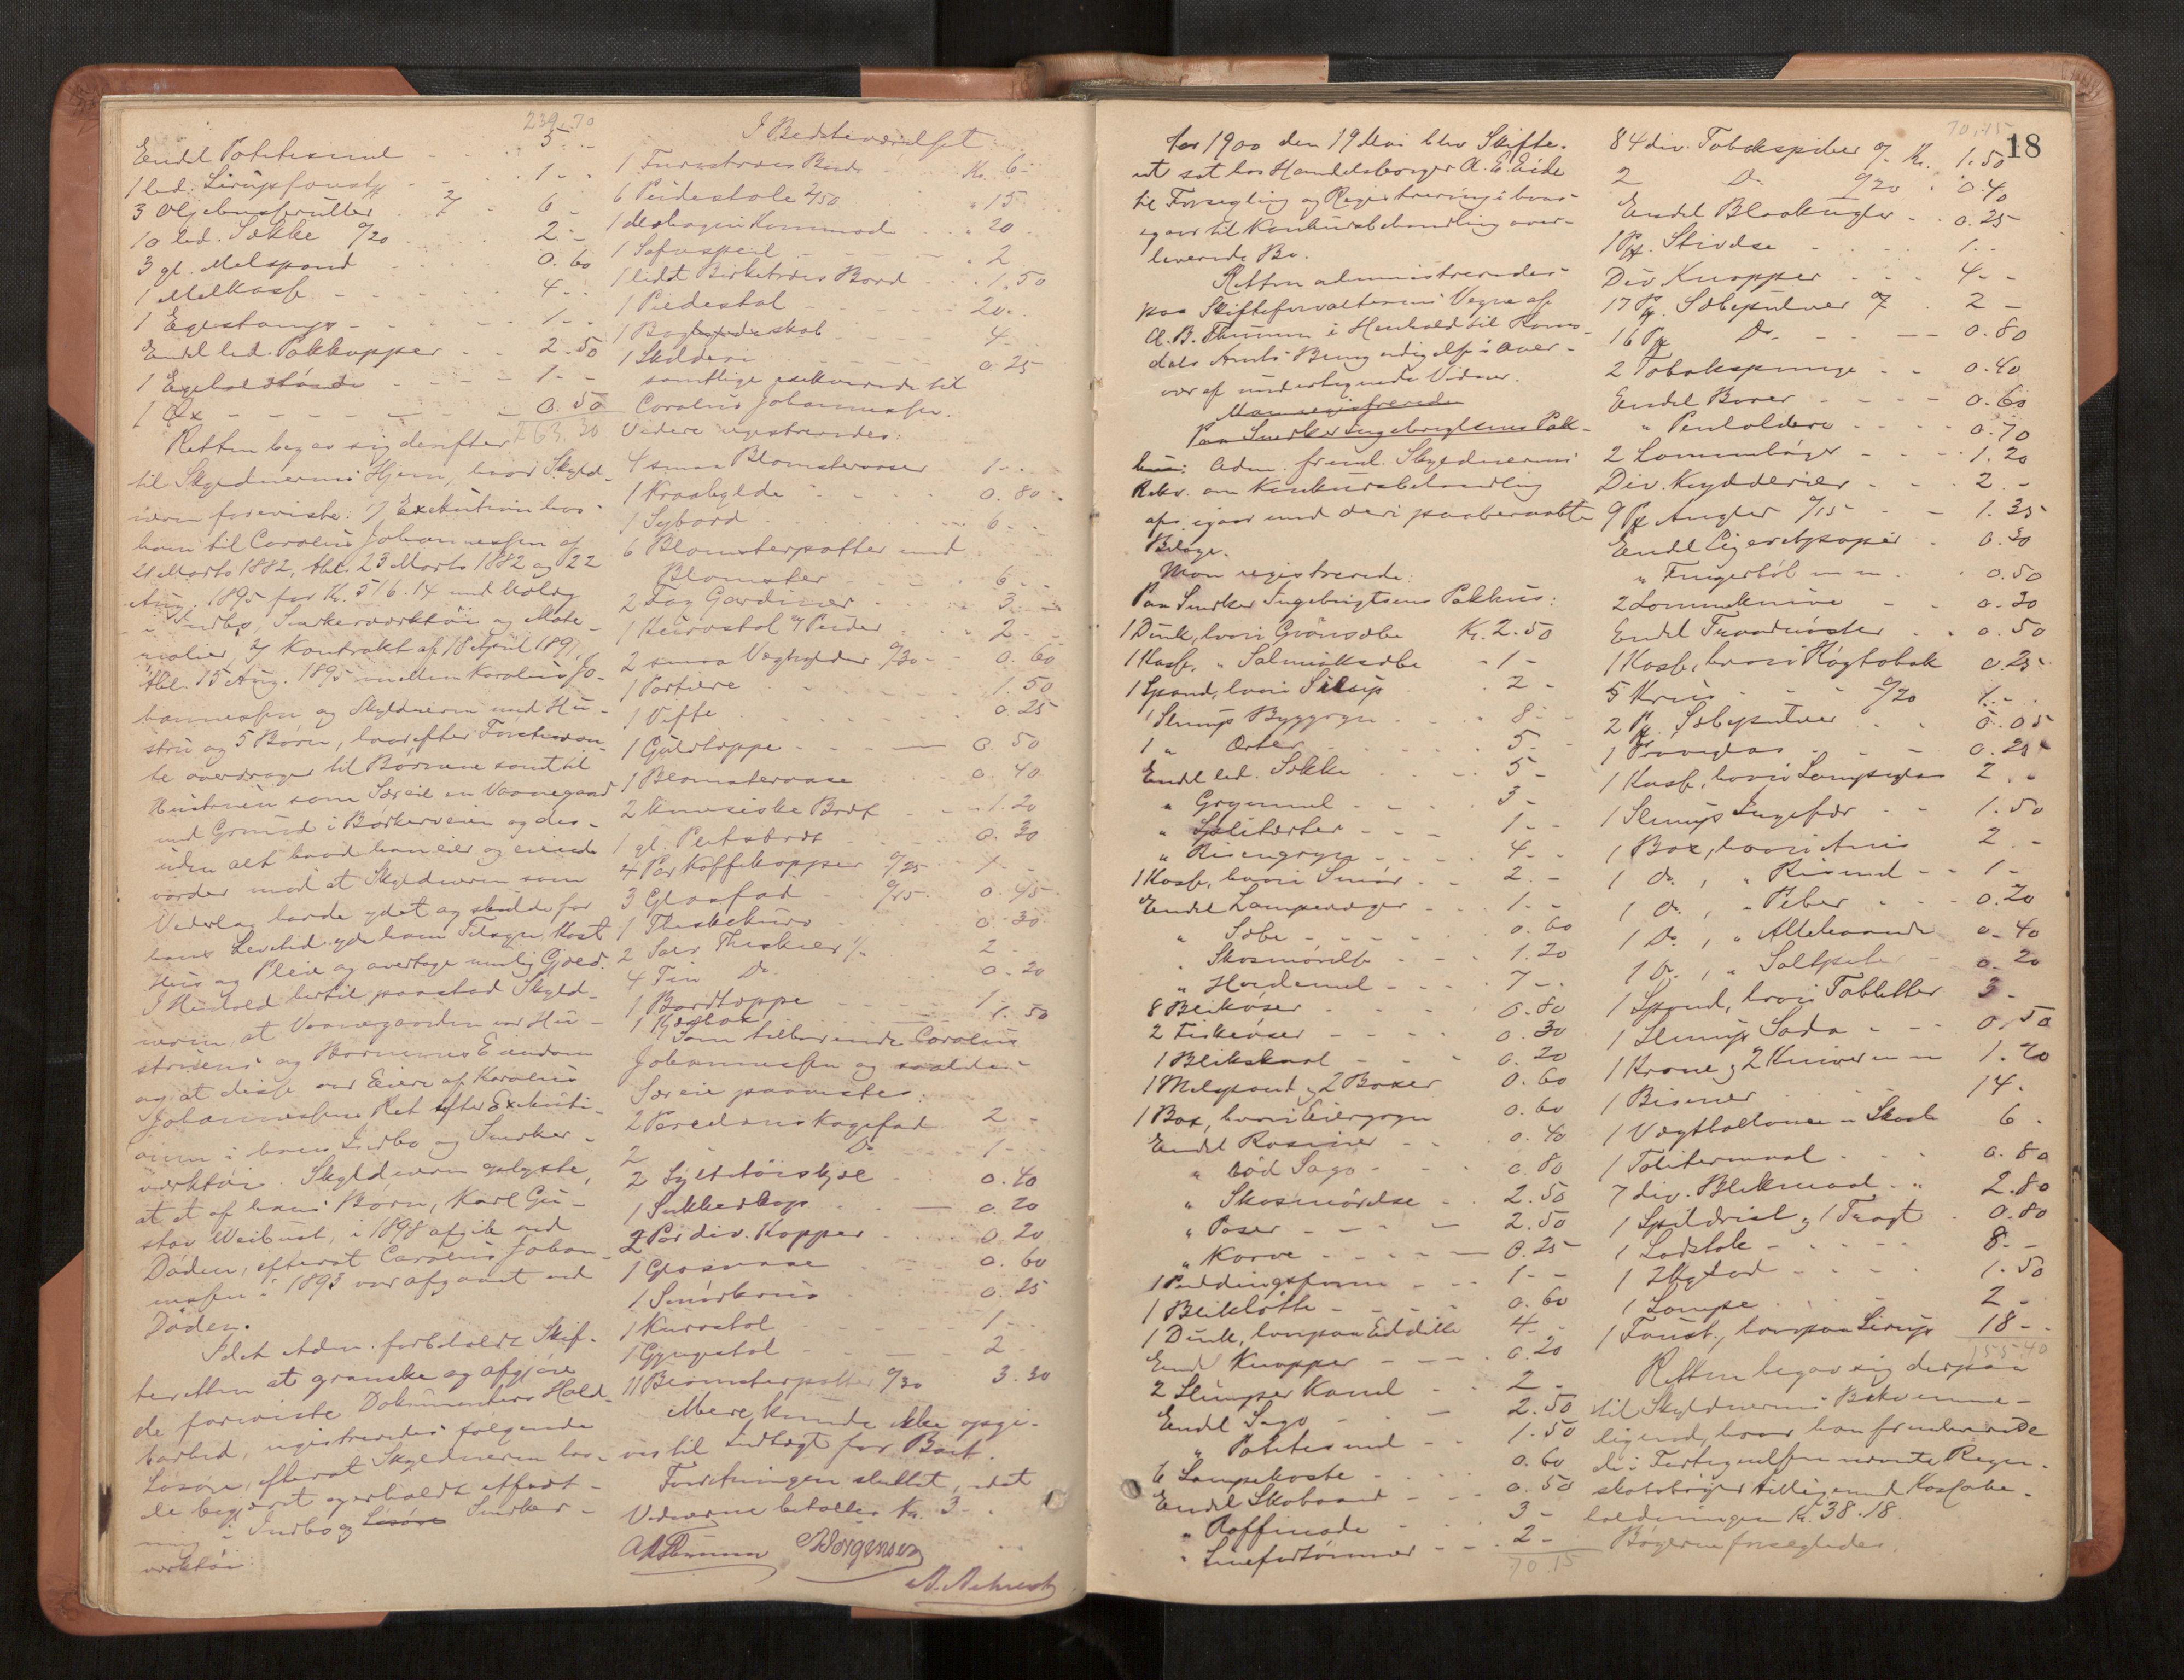 239.70
Endel Potetesmel - - - 5 - -
1 led. Sirupsfoustg - - 1 - -
3 Oljebusserutter 2/ - 6 -
10 led. Sække 0/20 - - 2 -
3 gl. Melspand - - - 0.60
1 Melkasse - - - 4 - -
1 Egestamp - - - - 1 - -
Endel led. Pakkopper - - 2.50
1 Egeholdtønde - - - 1 - -
1 Øx - - - - - - 0.50
263.30
Retten begav sig derefter
til Skyldnerens Hjem, hvor Skyld-
neren foreviste: 1/ Exekution hos
ham til Carolus Johannessen af
21 Marts 1882, tbl. 23 Marts 1882 og 22
Aug. 1895 for Kr. 516.14 med Udlæg
i Indbo, Snekkerværktøi og Mate-
rialier, 2/ Kontrakt af 18 April 1891,
tbl. 15 Aug. 1895 mellem Karolus Jo-
hannessen og Skyldneren med Hu-
stru og 5 Børn, hvorefter Førstnævn-
te overdrager til Børnene samt til
Hustruen som Særeie en Vaanegaard
med Grund i Barkerveien og des-
uden alt hvad han eier og eiende
vorder mod at Skyldneren som
Vederlag havde ydet og skulde for
hans Levetid yde ham Tilsyn, Kost
Hus og Pleie og overtage muelig Gjæld.
I Henhold hertil paastod Skyld-
neren, at Vaanegaarden var Hu-
struens og Børnenes Eiendom
og at disse var Eiere af Karolus
Johannessens Ret efter Exekuti-
onen i hans Indbo og Snekker-
værktøi. Skyldneren oplyste,
at et af hans Børn, Karl Gu-
stav Weibust, i 1898 afgik ved
Døden, efterat Carolus Johan-
nessen i 1893 var afgaaet ved
Døden.
Idet Adm. forbeholdt Skif-
teretten at granske og afgjøre
de foreviste Dokumenters Hold-
barhed, registreredes følgende
Løsøre, efterat Skyldneren hav-
de begjæret og erholdt effort-
ning i Indbo og Løsøre Snekker-
værktøi:
I Bedsteværelset
1 Furutræes Bord - Kr. 6 -
6 Pindestole 2/50 " 15
1 dragen Kommode - " 20
1 Sofaspeil - - - - " 2
1 lidt Birketræes Bord - - 1.50
1 Piedestal - - - 20 -
1 Boghyldeskab - - - 4 -
1 Skilderi - - - 0.25
samtlige exekverede til
Carolus Johannessen.
Videre registreredes:
4 smaa Blomstervaser 1 - -
1 Kraahylde - - - 0.80
1 Sybord - - - 6 - -
6 Blomsterpotter med
Blomster - - - 6 - -
2 Fag Gardiner - - - 3 -
1 Kurvstol & Puder - - 2 - -
2 smaa Væghylder 0/30 - 0.60
1 Portiere - - - 1.50
1 Vifte - - - 0.25
1 Gulvteppe - - - 0.50
1 Blomstervase - - - 0.40
2 kinesiske Bret - - 1.20
1 gl. Pletsbret - - - 0.30
4 Par Kaffekopper 0/25 1 -
3 Glasfad - - 0/15 - 0.45
1 Theskekurv - - - 0.30
2 Sølv Theskeer 1/- 2 -
4 Tin Do - - 0.20
1 Bordteppe - - - 1 -
1 Kjøbox - - - 1.50
Som tilhørende Carolus
Johannessen og saaledes
Særeie paavistes:
2 Porcelæns Kagefad 2 -
2 " Do - 1 -
2 Syltetøiskjæl - 0.40
1 Sukkerkop - 0.20
2 Par div. Kopper - 0.20
1 Glasvase - - 0.60
1 Smørkrus - - 0.25
1 Kurvstol - - - 1 - -
1 Gyngestol - - - 2 -
11 Blomsterpotter 0/30 3.30
Mere kunde ikke opgi-
ves til Indtægt for Boet.
Forretningen sluttet, idet
Vidnerne betaltes Kr. 3 -
ABThumm AJørgensen
18
Aar 1900 den 19 Mai blev Skifte-
ret sat hos Handelsborger A. E. Eide
til Forsegling og Registrering i hans
igaar til Konkursbehandling over-
leverede Bo.
Retten administreredes
paa Skifteforvalterens Vegne af
A. B. Thumm i Henhold til Roms-
dals Amts Bemyndigelse i Over-
vær af undertegnede Vidner.
Man registrerede
Paa Snekker Ingebrigtsens Pak-
hus: Adm. freml. Skyldnerens
Rekv. om Konkursbehandling
afs. igaar med deri paaberaabte
Bilage.
Man registrerede:
Paa Snekker Ingebrigtsens Pakhus:
1 Dunk, hvori Grønsæbe Kr. 2.50
1 Kasse, " Salmiaksæbe - 1 -
1 Spand, hvori Sirup - 2 -
1 Slump Byggryn - - 8 - -
1 " Erter - - - 5 -
Endel led. Sække - - - 5 -
" Grynmel - - - 3 -
" Splitærter - - - 1 - -
" Risengryn - - - 4 - -
1 Kasse, hvori Smør - - 2 -
Endel Lampevæger - - 1 - -
" Sæbe - - - - 0.60
" Skosmørelse - - 1.20
" Hvedemel - - - 7 - -
8 Blikøser - - - 0.80
2 Fiskeøser - - - 0.30
1 Blikskaal - - - 0.20
1 Melspand, 2 Boxer 0.60
1 Box, hvori Eiergryn 0.60
Endel Rosiner - - 0.40
" rød Sago - - - 0.80
" Skosmørelse - 2.50
" Poser - - - - 2.50
" Korve - - - - 0.25
1 Puddingsform - - 1 - -
1 Blikbøtte - - - 0.60
1 Dunk, hvorpaa Eddik 4 -
Endel Knapper - - - 0.20
2 Slumper Kanel - - 2 -
Endel Sago - - - 2.50
" Potetesmel - - 1.50
6 Lampekoste - - - 0.60
Endel Skobaand - - 0.50
" Raffinade - - 3 -
" Snefortømmer - - 2 -
70.15
70.15
84 div. Tobakspiber 9/- Kr. 1.50
2 Do 0/20 " 0.40
Endel Blaakugler - - 0.25
1 Pk. Stivelse - - - 1 - -
Div. Knapper - - - 4 - -
17 Pk. Sæbepulver 9/ - 2 -
16 Pk Do - - - 0.80
2 Tobakspunge - - 0.40
Endel Borer - - - 0.60
" Penholdere - - - 0.70
2 Lommebøger - - - 1.20
Div. Krydderier - - 2 -
9 Pk Angler 0/15 - - 1.35
Endel Cigaretpapir - 0.30
" Fingerbøl m m - - 0.50
2 Lommeknive - - 0.30
Endel Traadnøster - - 0.50
1 Kasse, hvori Røgtobak 0.25
5 Krus - - - 0/20 1 - -
2 Pk. Sæbepulver - - 0.05
1 Prøveglas - - - 0.25
1 Kasse, hvori Lampeglas 2 -
1 Slump Ingefær - - 1.50
1 Box, hvori Anis 2 -
1 Do, " Rismel - - 1 -
1 Do, " Peber - - 0.20
1 Do, " Allehaande 0.40
1 Do, " Saltpeter - 0.20
1 Spand, hvori Tabletter 3 -
1 Slump Soda - - - 0.50
1 Krone, 2 Kniver m m 1.20
1 Bismer - - 14 -
1 Vægtballance m Skaale 6 -
1 Tolitermaal - - - 0.80
7 div. Blikmaal - " 2.80
1 Spildrist, 1 Tragt 0.80
1 Ladstok - - - - 8 - -
1 2kglod - - - 1.50
1 Lampe - - - 2 -
1 Foust., hvorpaa Sirup 18 - -
155.40
Retten begav sig derpaa
til Skyldnerens Bekvemme-
lighed, hvor han fremleverede
de i Fortegnelsen nævnte Regn-
skabsbøger tilligemed Kassabe-
holdningen Kr. 38.18.
Bøgerne forsegledes.